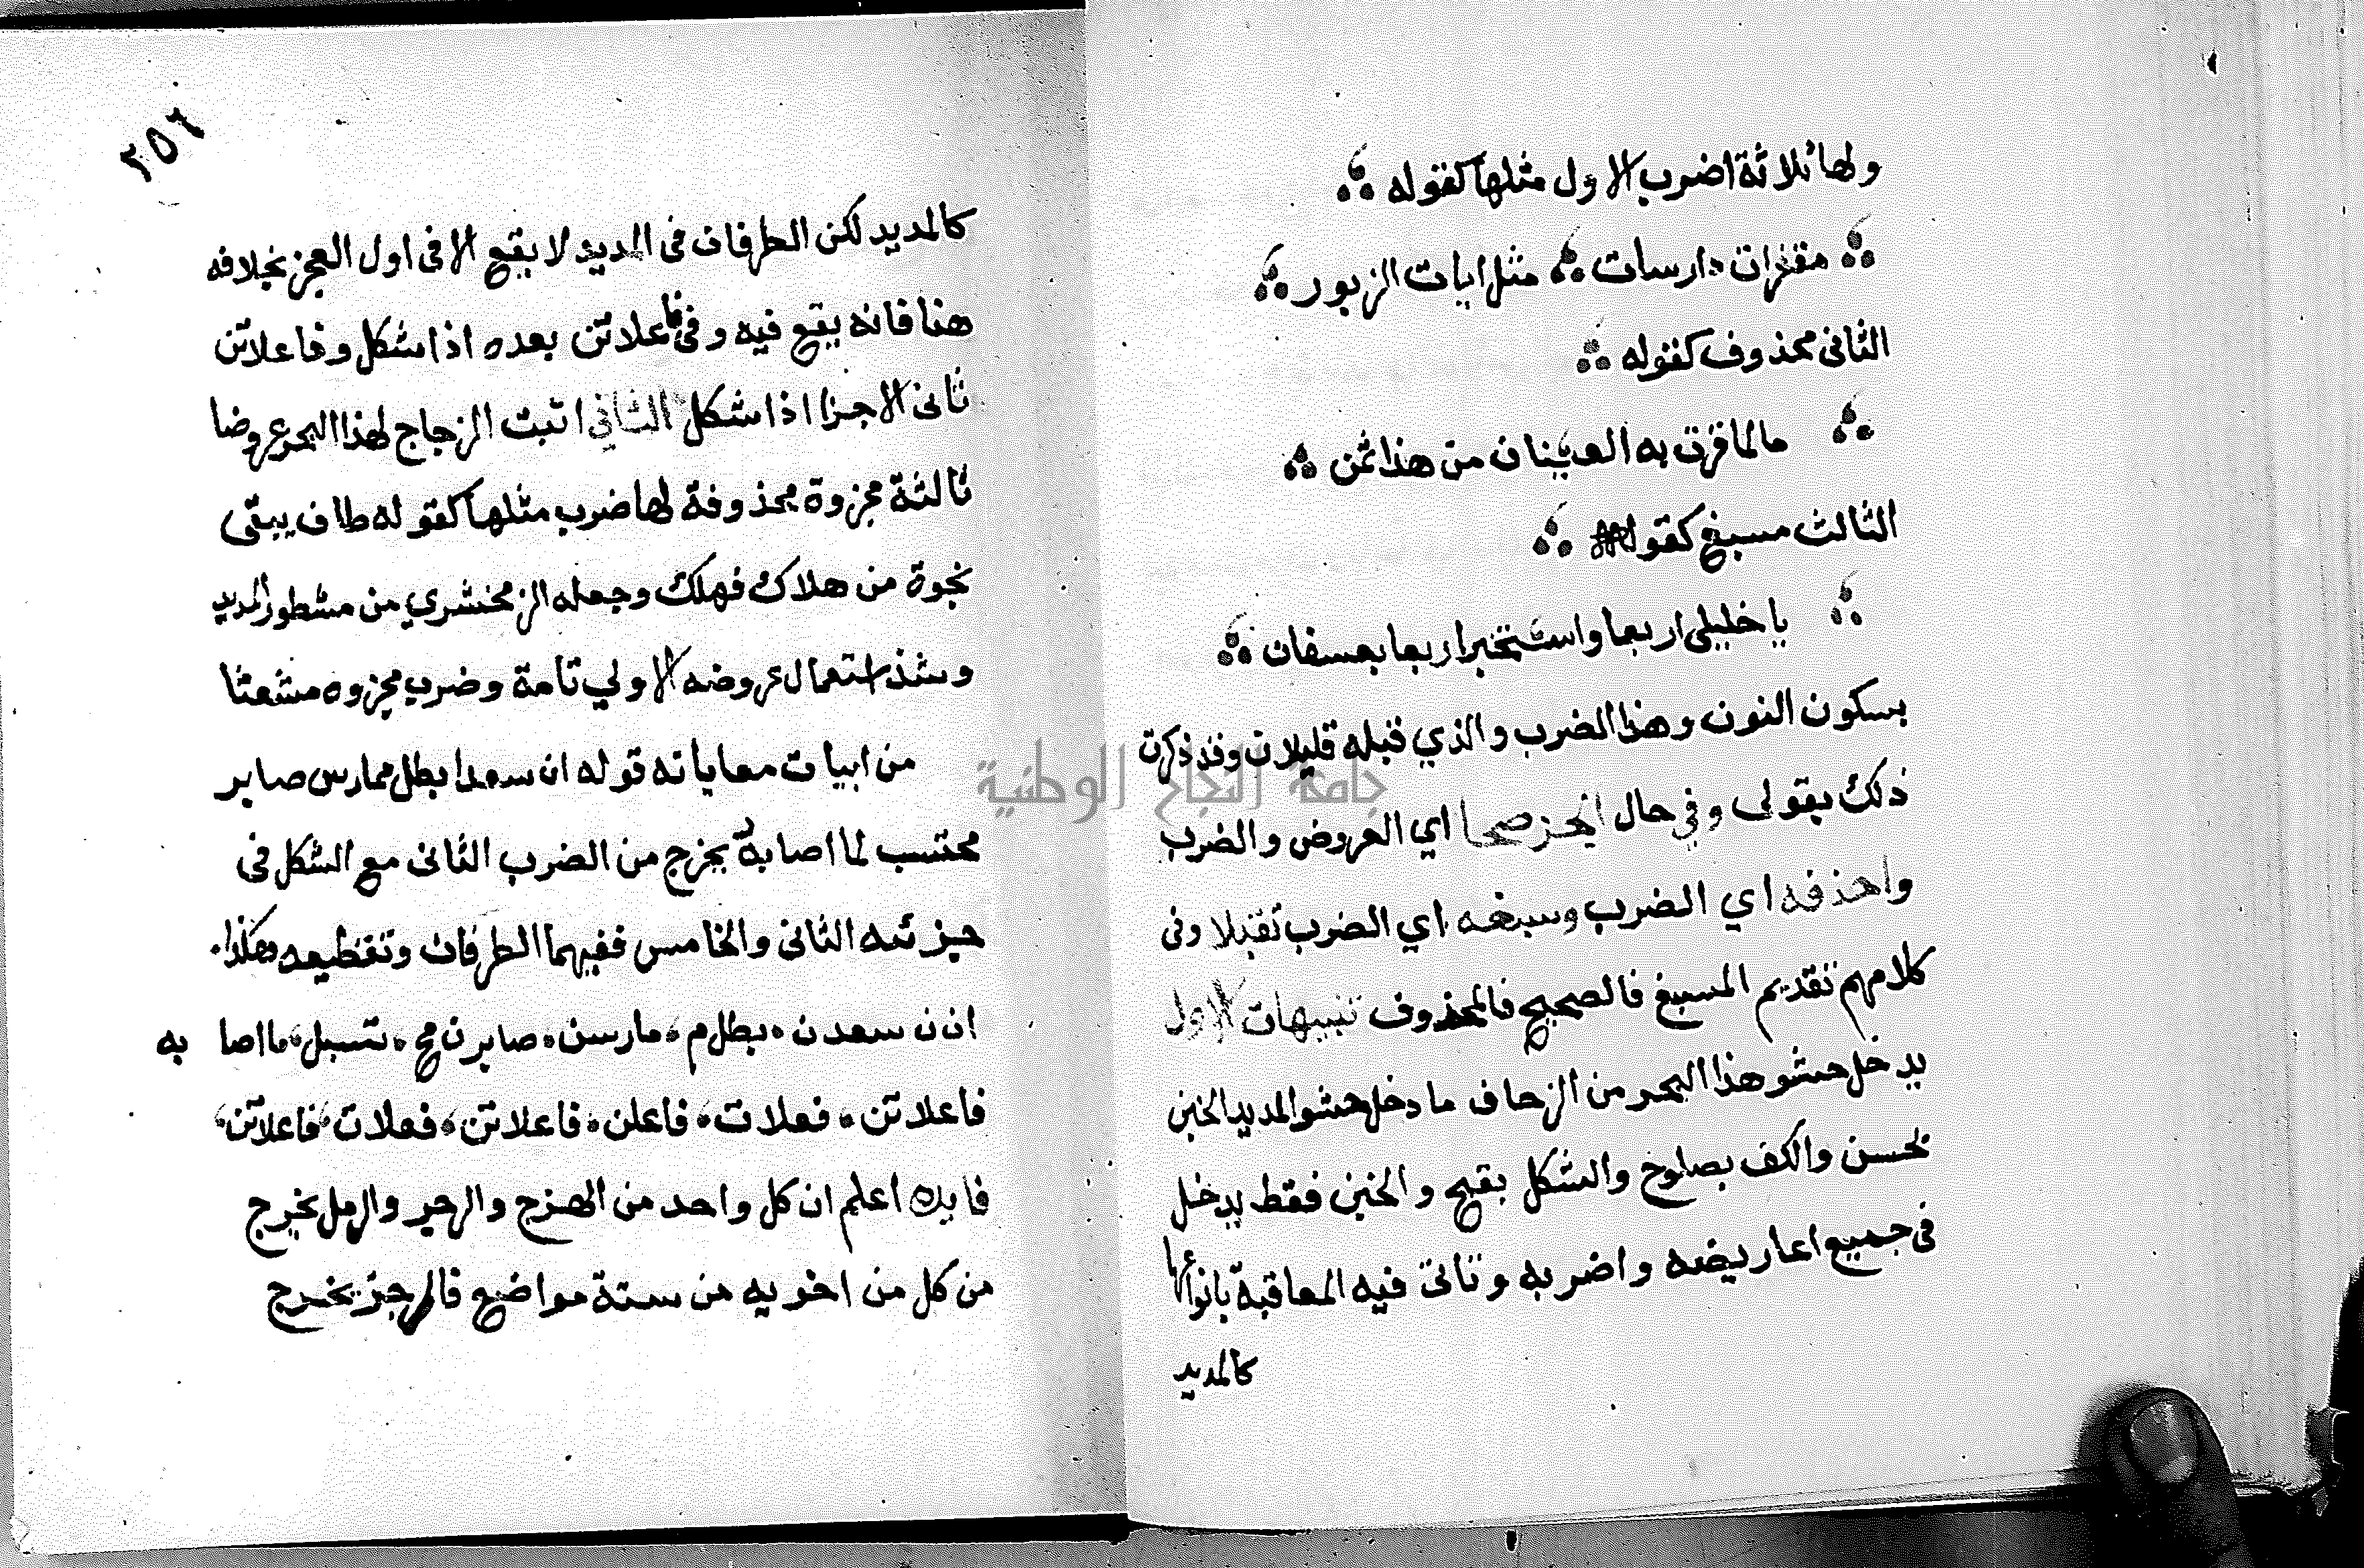 ولها ثلاثة اضرب الاول مثلها كقوله
مقفرات دارسات مثل ايات الزبور
الثانى محذوف كقوله
مالما قرت به العينان من هذا ثمن
الثالث مسبغ كقوله
يا خليلى اربعا واستخبرا ربعا بعسفان
بسكون النون وهذا الضرب والذي قبله قليلان وقد ذكرت
ذلك بقولى وفي حال اي العروض والضرب
واحذفه اي الضرب وسبغه اي الضرب تقبلا وفى
كلامهم تقديم المسبغ فالصحيح فالمحذوف تنبيهات الاول
يدخل حشو هذا البحر من الزحاف ما دخل حشو المديد الخبن
بحسن والكف بصلوح والشكل بقبح والخبن فقط يدخل
فى جميع اعاريضه واضربه وتاتى فيه المعاقبة بانواعها
كالمديد
٢٥٦
كالمديد لكن الطرفان فى المديد لا يقع الا فى اول العجز بخلافه
هنا فانه يقع فيه وفى فاعلاتن بعده اذا شكل وفاعلاتن
ثانى الاجزا اذا شكل الثاني اثبت الزجاج لهذا البحر عروضا
ثالثة مجزوة محذوفة لها ضرب مثلها كقوله طاف يبقى
نجوة من هلاك فهلك وجعله الزمخشري من مشطور المديد
وشذ استعمال عروضه الاولي تامة وضرب مجزوه مشعثا
من ابيات معاياته قوله ان سعدا بطل ممارس صابر
محتسب لما اصابه يخرج من الضرب الثانى مع الشكل فى
جزئه الثانى والخامس ففيهما الطرفان وتقطيعه هكذا
ان ن سعدن بطل م مارسن صابرن مح تسبل ما اصا به
فاعلاتن فعلات فاعلن فاعلاتن فعلات فاعلاتن
فايده اعلم ان كل واحد من الهزج والرجز والرمل يخرج
من كل من اخويه من ستة مواضع فالرجز يخرج
جامعة النجاح الوطنية